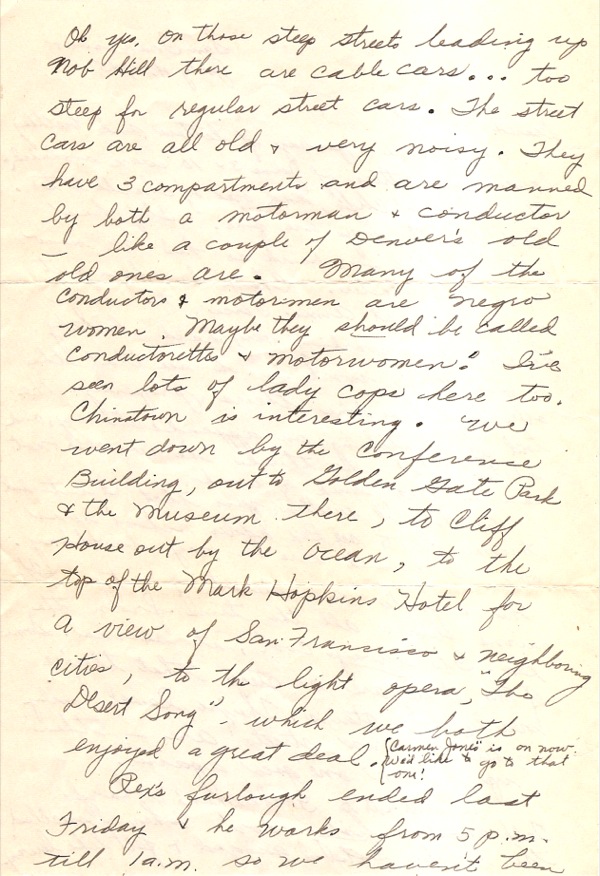 Oh yes, on those steep streets leading up
Nob Hill there are cable cars... too
steep for regular street cars. The street
cars are all old & very noisy. They
have 3 compartments and are manned
by both a motorman & conductor
— like a couple of Denver's old
old ones are. Many of the
conductors & motormen are negro
women. Maybe they should be called
"Conductorettes & motorwomen." I've
seen lots of lady cops here too.
Chinatown is interesting. We
went down by the Conference
Building, out to Golden Gate Park
& the Museum there, to Cliff
House out by the ocean, to the
top of the Mark Hopkins Hotel for
a view of San Francisco & neighboring
cities, to the light opera, "The
Desert Song" - which we both
enjoyed a great deal. {"Carmen Jones" is on now.
We'd like to go to that
one!
Rex's furlough ended last
Friday & he works from 5 p.m.
till 1 a.m. so we haven't been